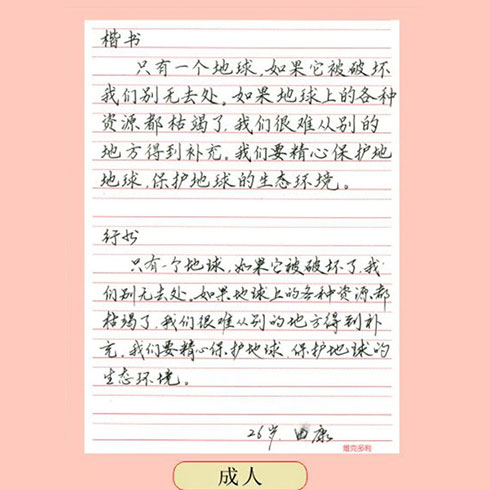 楷书
只有一个地球,如果它被破坏
我们别无去处。如果地球上的各种
资源都枯竭了,我们很难从别的
地方得到补充。我们要精心保护地
地球,保护地球的生态环境。
行书
只有一个地球,如果它被破坏了,我
们别无去处。如果地球上的各种资源都
枯竭了,我们很难从别的地方得到补
充。我们要精心保护地球,保护地球的
生态环境。
26岁 田康
维克多利
成人